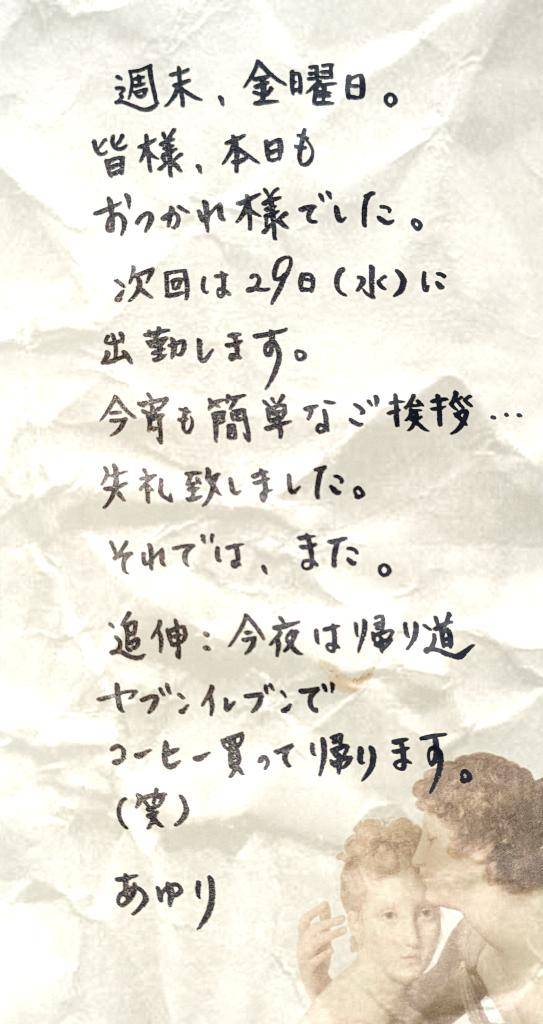 週末、金曜日。
皆様、本日も
おつかれ様でした。
次回は29日(水)に
出勤します。
今宵も簡単なご挨拶…
失礼致しました。
それでは、また。
追伸:今夜は帰り道
セブンイレブンで
コーヒー買って帰ります。
(笑)
あゆり